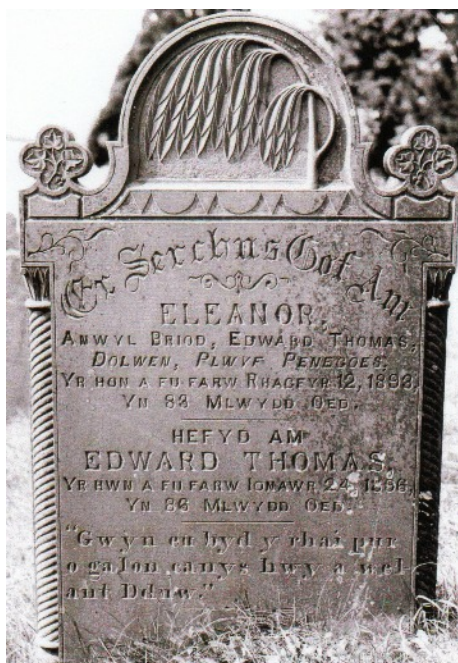 Er Serchus Gof Am
ELEANOR,
ANWYL BRIOD, EDWARD THOMAS,
DOLWEN, PLWYF PENEGOES,
YR HON A FU FARW RHAGFYR 12, 1893,
YN 83 MLWYDD OED.
HEFYD AM
EDWARD THOMAS,
YR HWN A FU FARW IONAWR 24, 1896,
YN 86 MLWYDD OED.
"Gwyn eu byd y rhai pur
o galon canys hwy a wel
ant Dduw."